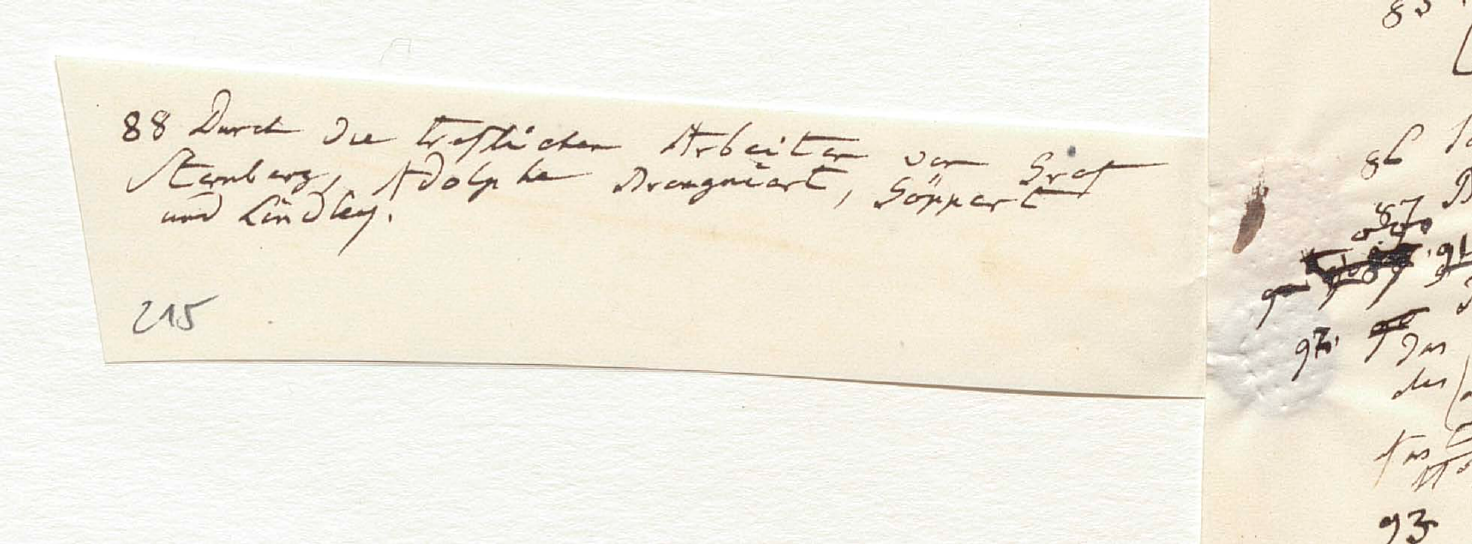 88 Durch die treflichen Arbeiten von Graf
Sternberg, Adolphe Brongniart, Göppert
und Lindley.
215
85
86
87
91
97.
das
des
93.